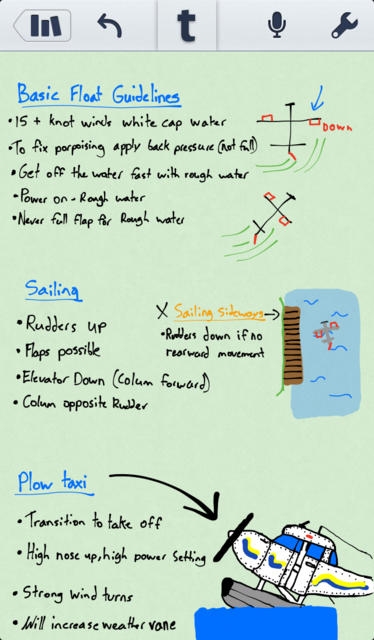 t
Basic Float Guidelines
•15 + knot winds white cap water
Down
•To fix porpoising apply back pressure (not full)
•Get off the water fast with rough water
•Power on - Rough water
•Never full flap for Rough water
Sailing
X Sailing sideways→
•Rudders up
•Rudders down if no
rearward movement
•Flaps possible
•Elevator Down (Colum forward)
•Colum opposite Rudder
Plow taxi
•Transition to take off
•High nose up, high power setting
•Strong wind turns
•Will increase weather vane